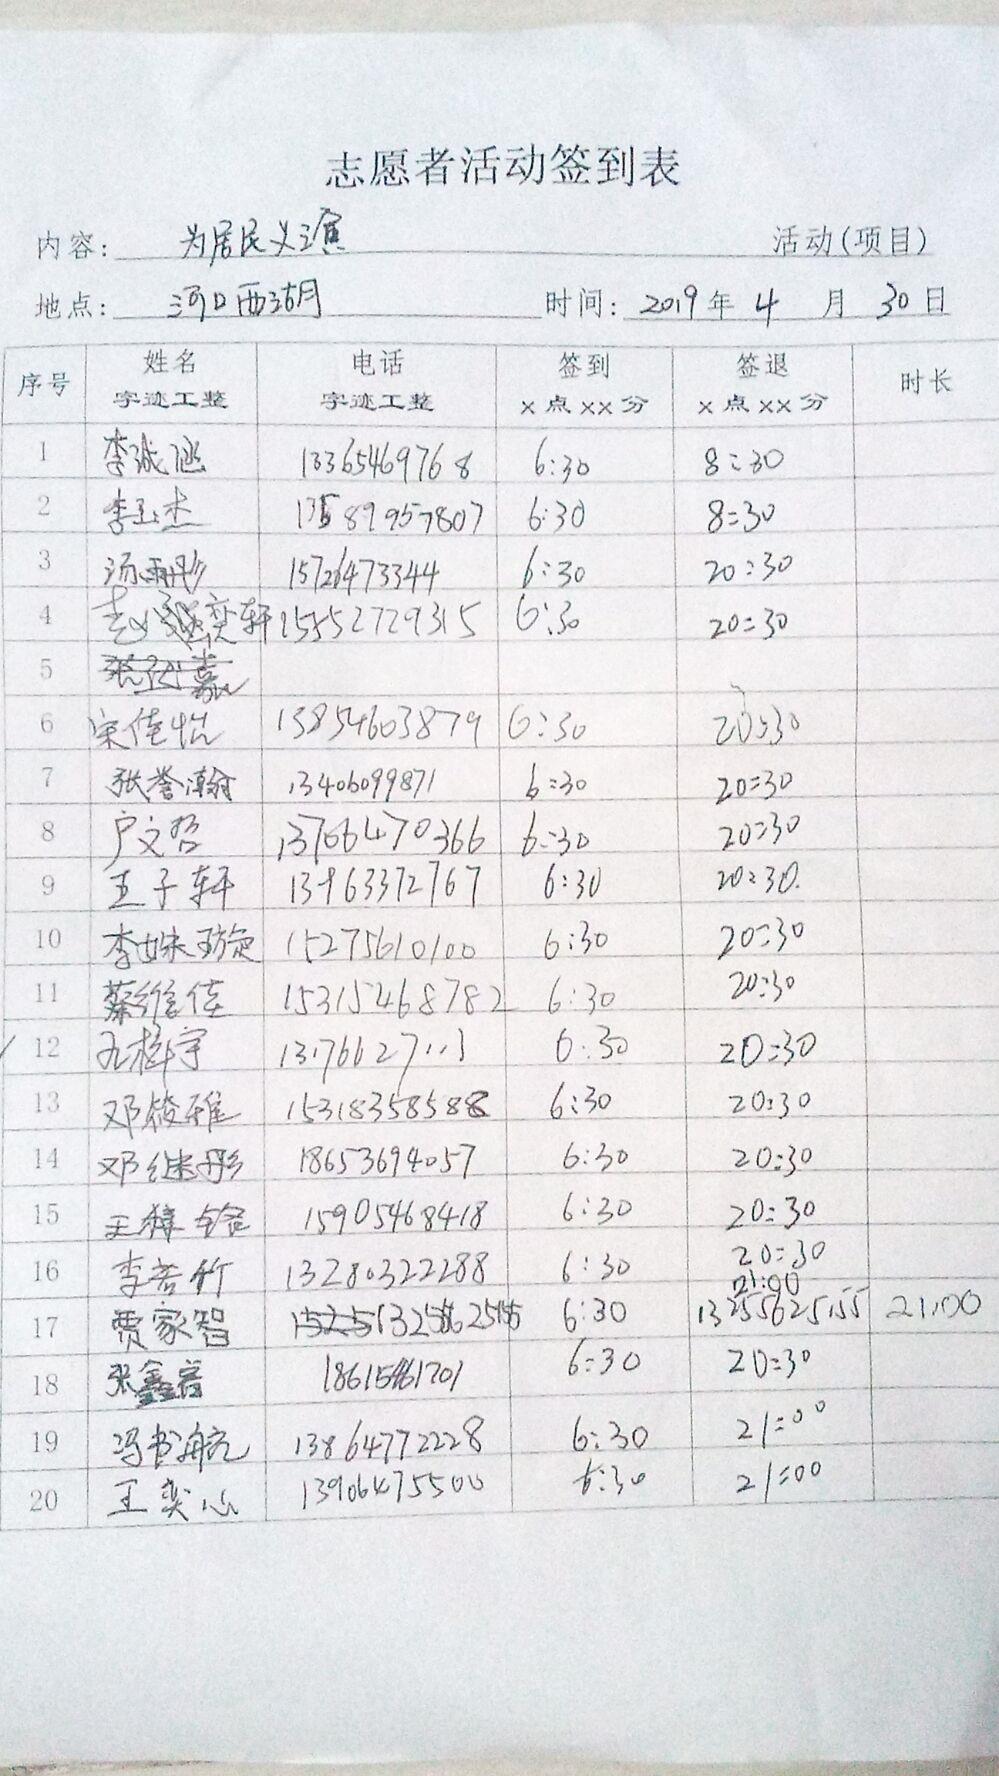 志愿者活动签到表
内容: 为居民义演 活动(项目)
地点: 河口西湖 时间: 2019年 4 月 30日
序号 姓名 字迹工整 电话 字迹工整 签到 x 点 xx 分 签退 x 点 xx 分 时长
1 李诚涵 13365469768 6:30 8:30
2 李玉杰 13589957807 6:30 8:30
3 汤雨彤 15726473344 6:30 20:30
4 奕轩 15552729315 6:30 20:30
5
6 宋佳怡 13854603879 6:30 20:30
7 张誉瀚 13406099871 6:30 20:30
8 户文哲 13706470366 6:30 20:30
9 王子轩 13963372767 6:30 20:30.
10 李姝璇 15275610100 6:30 20:30
11 蔡维佳 15315468782 6:30 20:30
12 宇 6:30 20:30
13 邓筱雅 15318358588 6:30 20:30
14 邓继彤 18653694057 6:30 20:30
15 王 15905468418 6:30 20:30
16 李若竹 13280322288 6:30 20:30
17 贾家智 6:30 21:00 13255625155 21:00
18 张鑫 18615461701 6:30 20:30
19 冯书航 13864772228 6:30 21:00
20 王奕心 13906475500 6:30 21:00